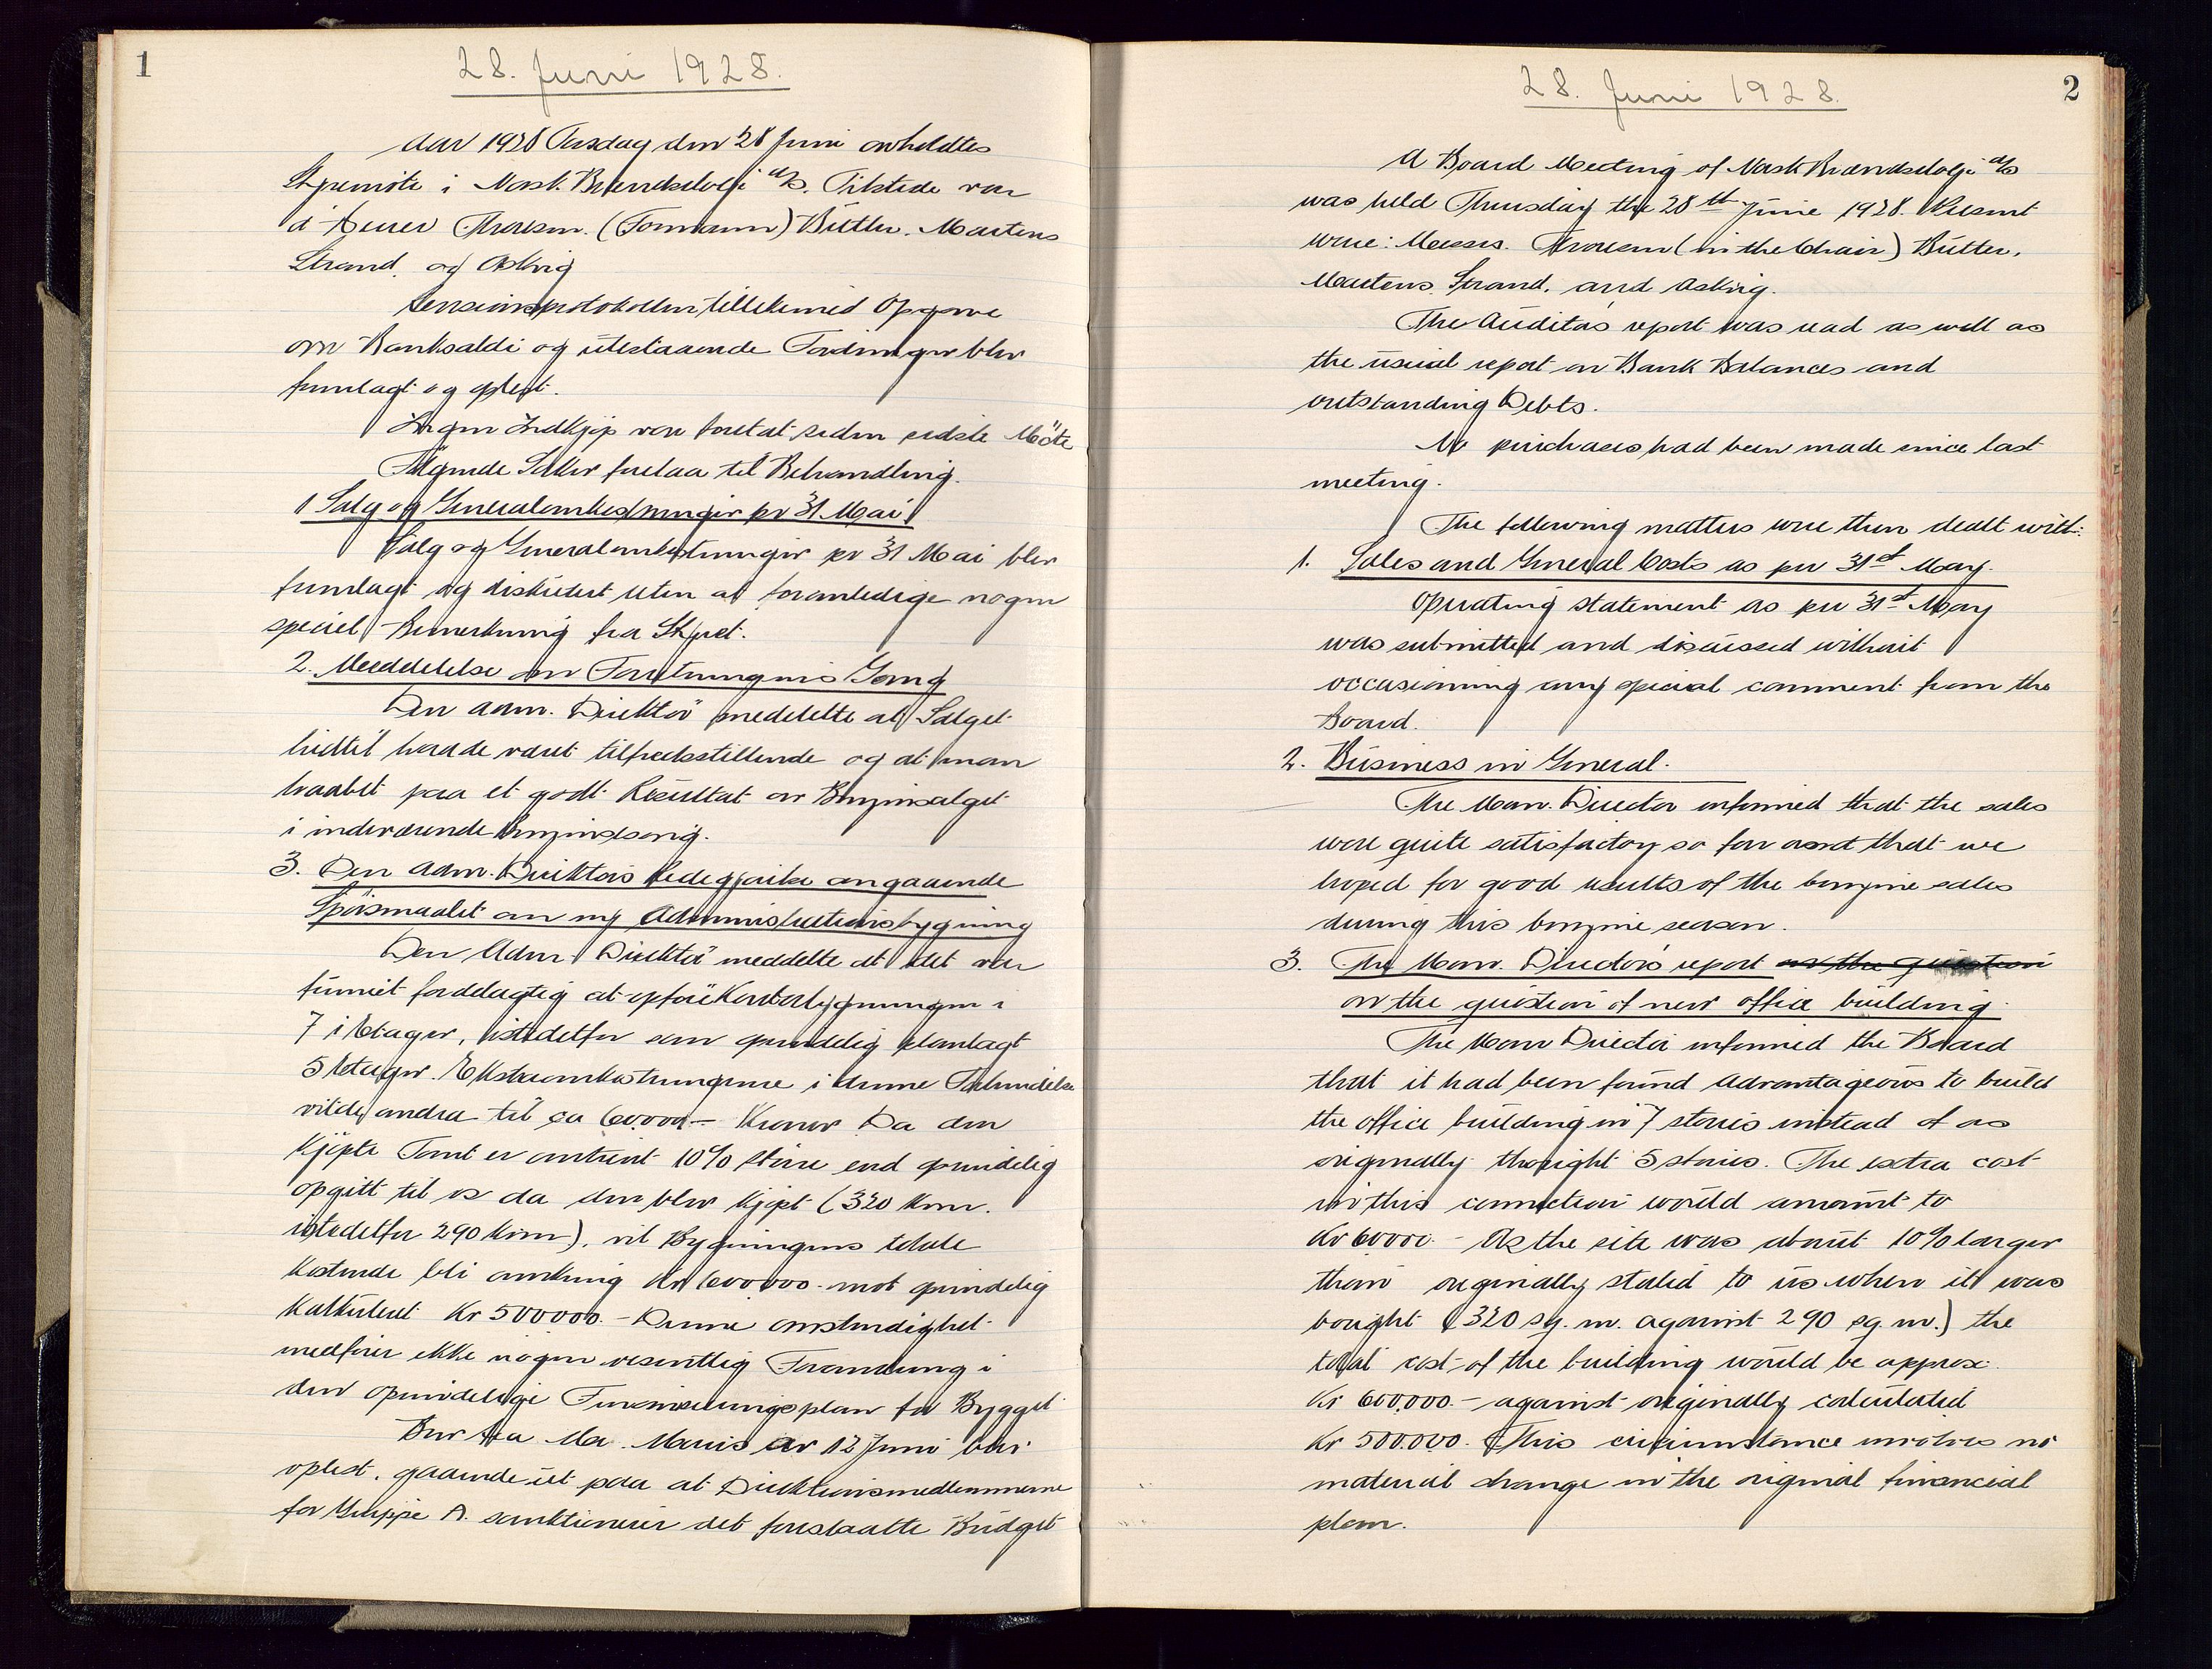 1
28. Juni 1928.
Aar 1928 Torsdag den 28 Juni avholdtes
Styremöte i Norsk Brændselolje A/S. Tilstede var
d'Herrer Thoresen (Formann) Bütler. Martens
Strand. og Asking
Revisionsprotokollen tillikemed Opgave
om Banksaldi og utestaaende Fordringer blev
fremlagt og oplest.
Ingen Indkjöp var foretat siden sidste Möte
Fölgende Saker forelaa til Behandling.
1 Salg og Generalomkostninger pr 31 Mai
Salg og Generalomkostninger pr 31 Mai blev
fremlagt og diskutert uten at foranledige nogen
speciel Bemerkning fra Styret.
2. Meddelelse om Forretningens Gang
Den adm. Direktör meddelte at Salget
hidtil hadde været tilfredsstillende og at man
haabet paa et godt Resultat av Benzinsalget
i indeværende Benzinsesong.
3. Den adm. Direktörs Redegjörelse angaaende
Spörsmaalet om ny Administrationsbygning
Den Adm Direktör meddelte at det var
funnet fordelagtig at opföre Kontorbygningen i
7 i Etager, istedetfor som oprindelig planlagt
5 Etager. Ekstraomkostningene i denne Forbindelse
vilde andra til ca 60.000.- Kroner Da den
kjöpte Tomt er omtrent 10% större end oprindelig
opgitt til os da den blev kjöpt (320 kvm.
istedetfor 290 kvm), vil Bygningens totale
Kostende bli omkring Kr 600.000.- mot oprindelig
kalkulert Kr 500000.- Denne omstendighet
medförer ikke nogen vesentlig Forandring i
den oprindelige Finansieringsplan for Bygget
Brev fra Mr. Maris av 12 Juni blev
oplest. gaaende ut paa at Direktionsmedlemmerne
for Gruppe A. sanktionerer det foreslaatte Budget
2
28. Juni 1928.
A Board Meeting of Norsk Brændselolje A/S
was held Thursday the 28th June 1928. Present
were: Messrs. Thoresen (in the Chair) Bütler.
Martens. Strand. and Asking.
The Auditors report was read as well as
the usual report on Bank Balances and
outstanding Debts.
No purchases had been made since last
meeting.
The following matters were then dealt with:
1. Sales and General Costs as per 31st May.
Operating statement as per 31st May
was submitted and discussed without
occasioning any special comment from the
Board.
2. Business in General.
The Man. Director informed that the sales
were quite satisfactory so far and that we
hoped for good results of the benzine sales
during this benzine season.
3. The Man. Director's report on the question
on the question of new office building.
The Man Director informed the Board
that it had been found advantageous to build
the office building in 7 stories instead of as
originally thought 5 stories. The extra cost
in this connection would amount to
Kr 60000.- As the site was about 10% larger
than originally stated to us when it was
bought (320 sq. m. against 290 sq. m.) the
total cost of the building would be approx:
Kr 600,000.- against originally calculated
Kr 500.000. This circumstance involves no
material change in the original financial
plan.